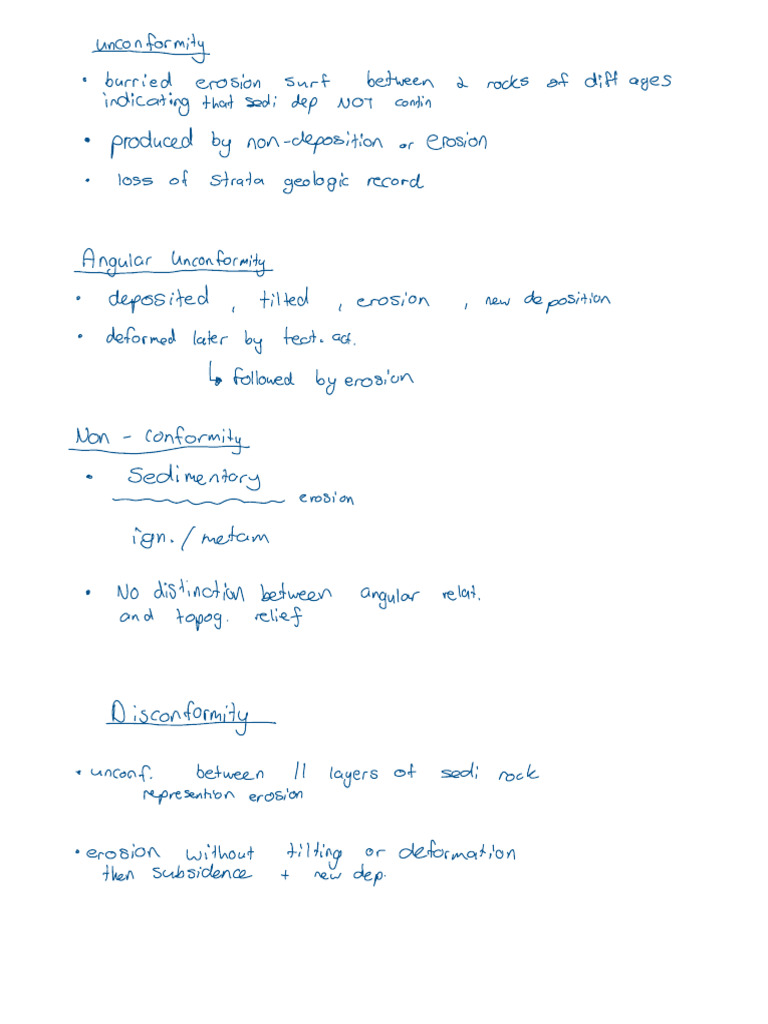 unconformity
• burried erosion surf between 2 rocks of diff ages
indicating that sedi dep NOT contin
• produced by non-deposition or erosion
• loss of strata geologic record
Angular Unconformity
• deposited, tilted, erosion, new deposition
• deformed later by tect. act.
↳ followed by erosion
Non - conformity
• Sedimentary
erosion
ign. / metam
• No distinction between angular relat.
and topog. relief
Disconformity
• unconf. between // layers of sedi rock
represention erosion
• erosion without tilting or deformation
then subsidence + new dep.